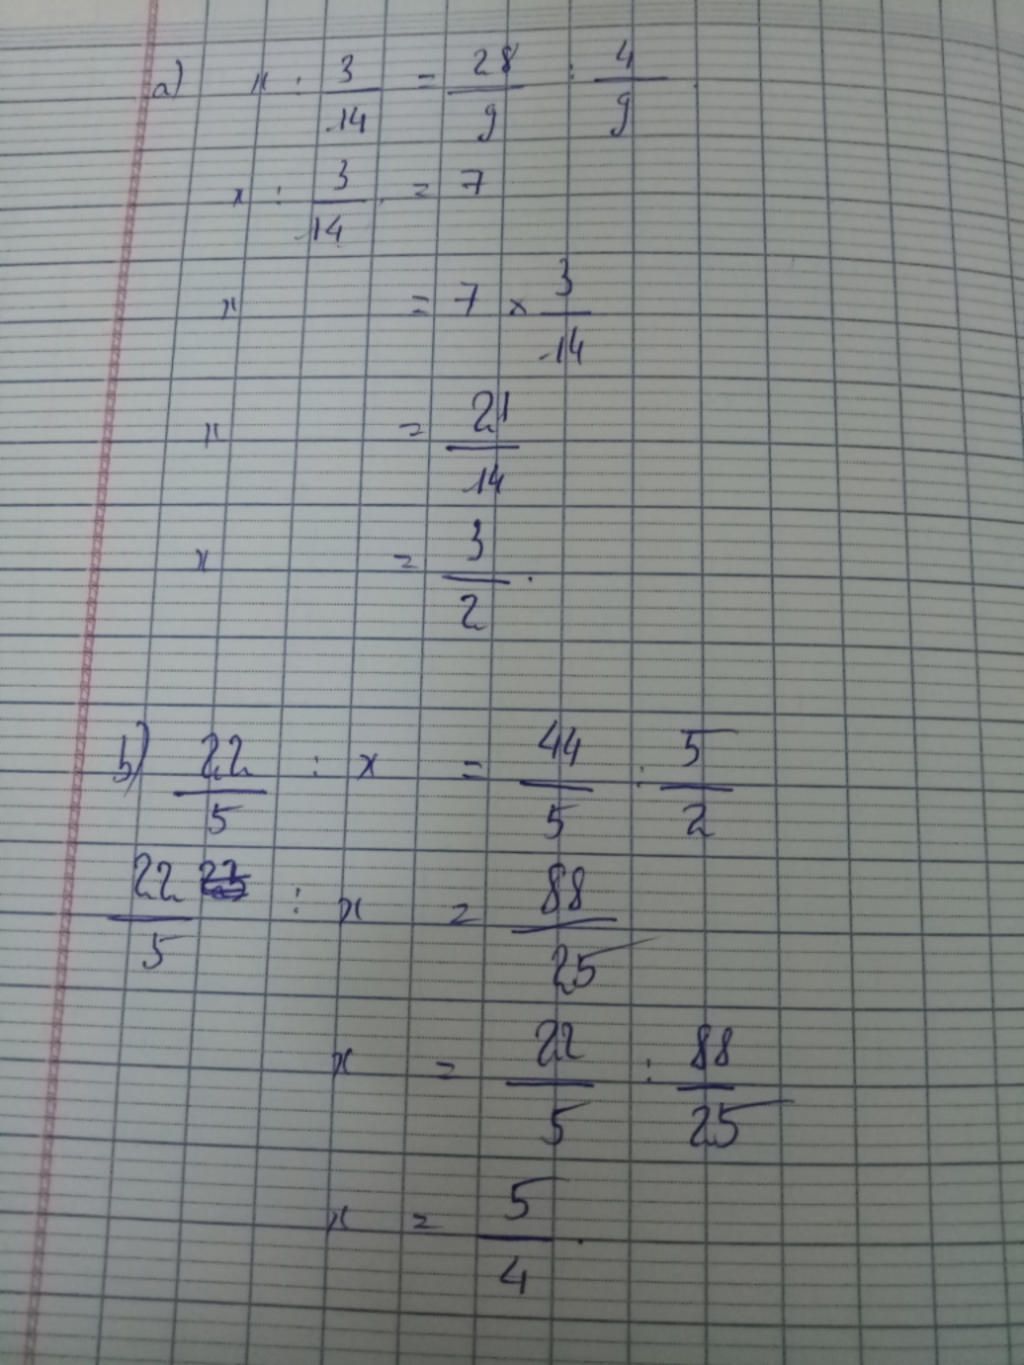 a) x : 3/14 = 28/9 : 4/9
x : 3/14 = 7
x = 7 × 3/14
x = 21/14
x = 3/2.
b) 22/5 : x = 44/5 : 5/2
22/5 : x = 88/25
x = 22/5 : 88/25
x = 5/4.